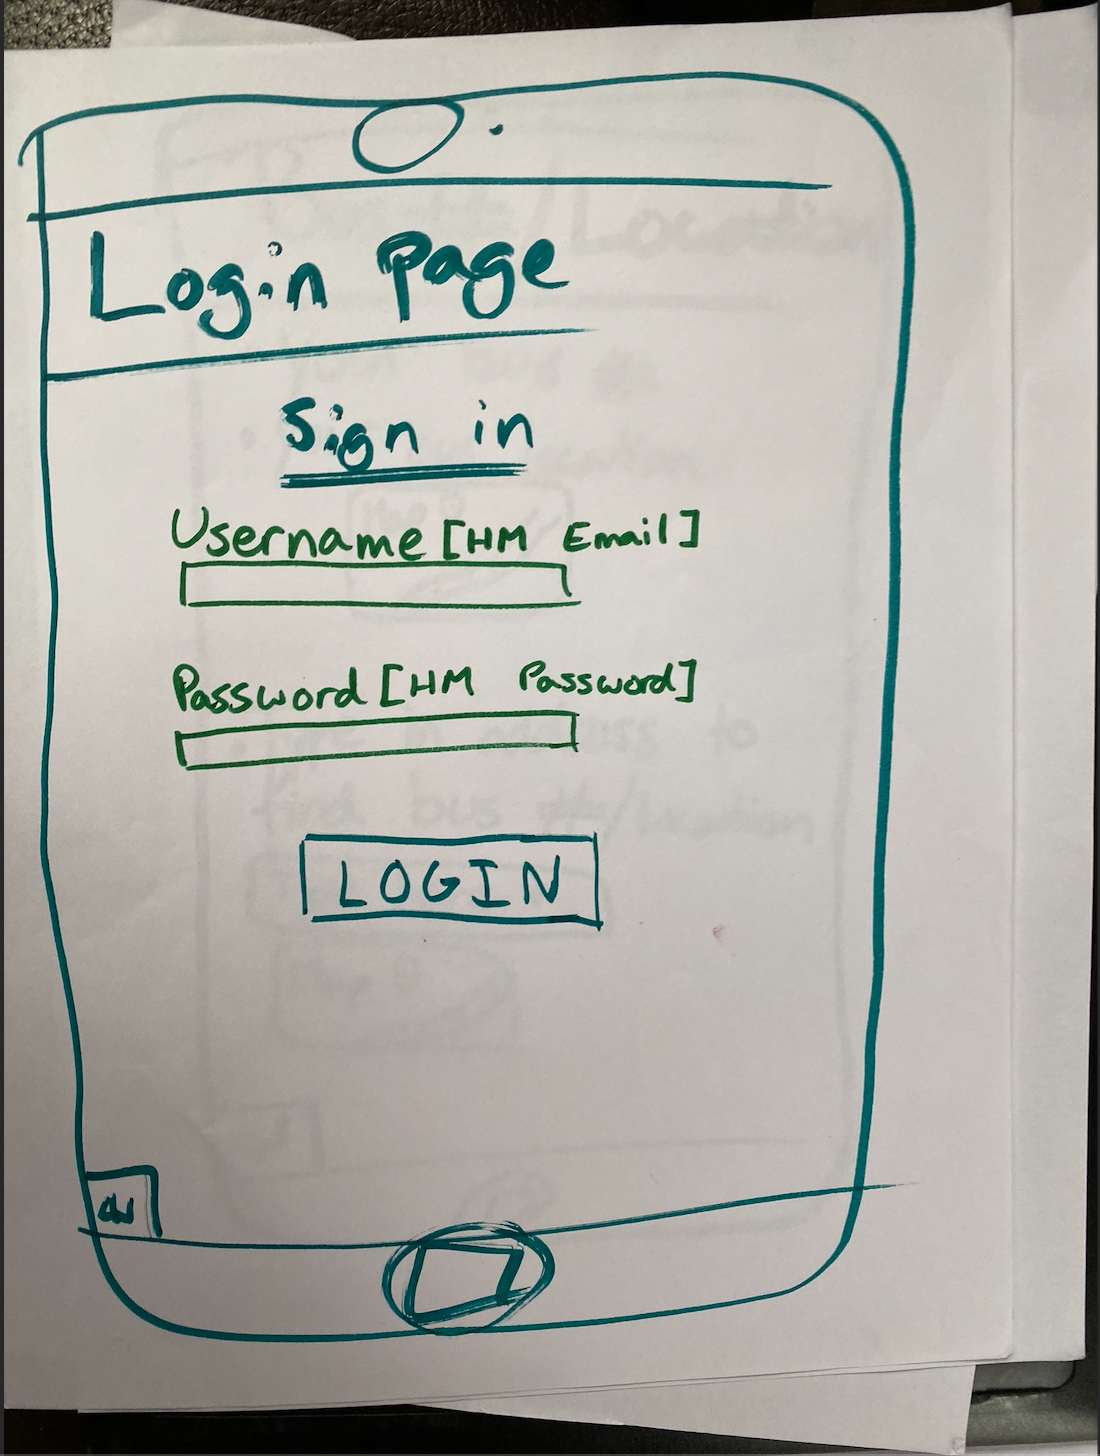 Login Page
Sign in
Username [HM Email]
Password [HM Password]
LOGIN